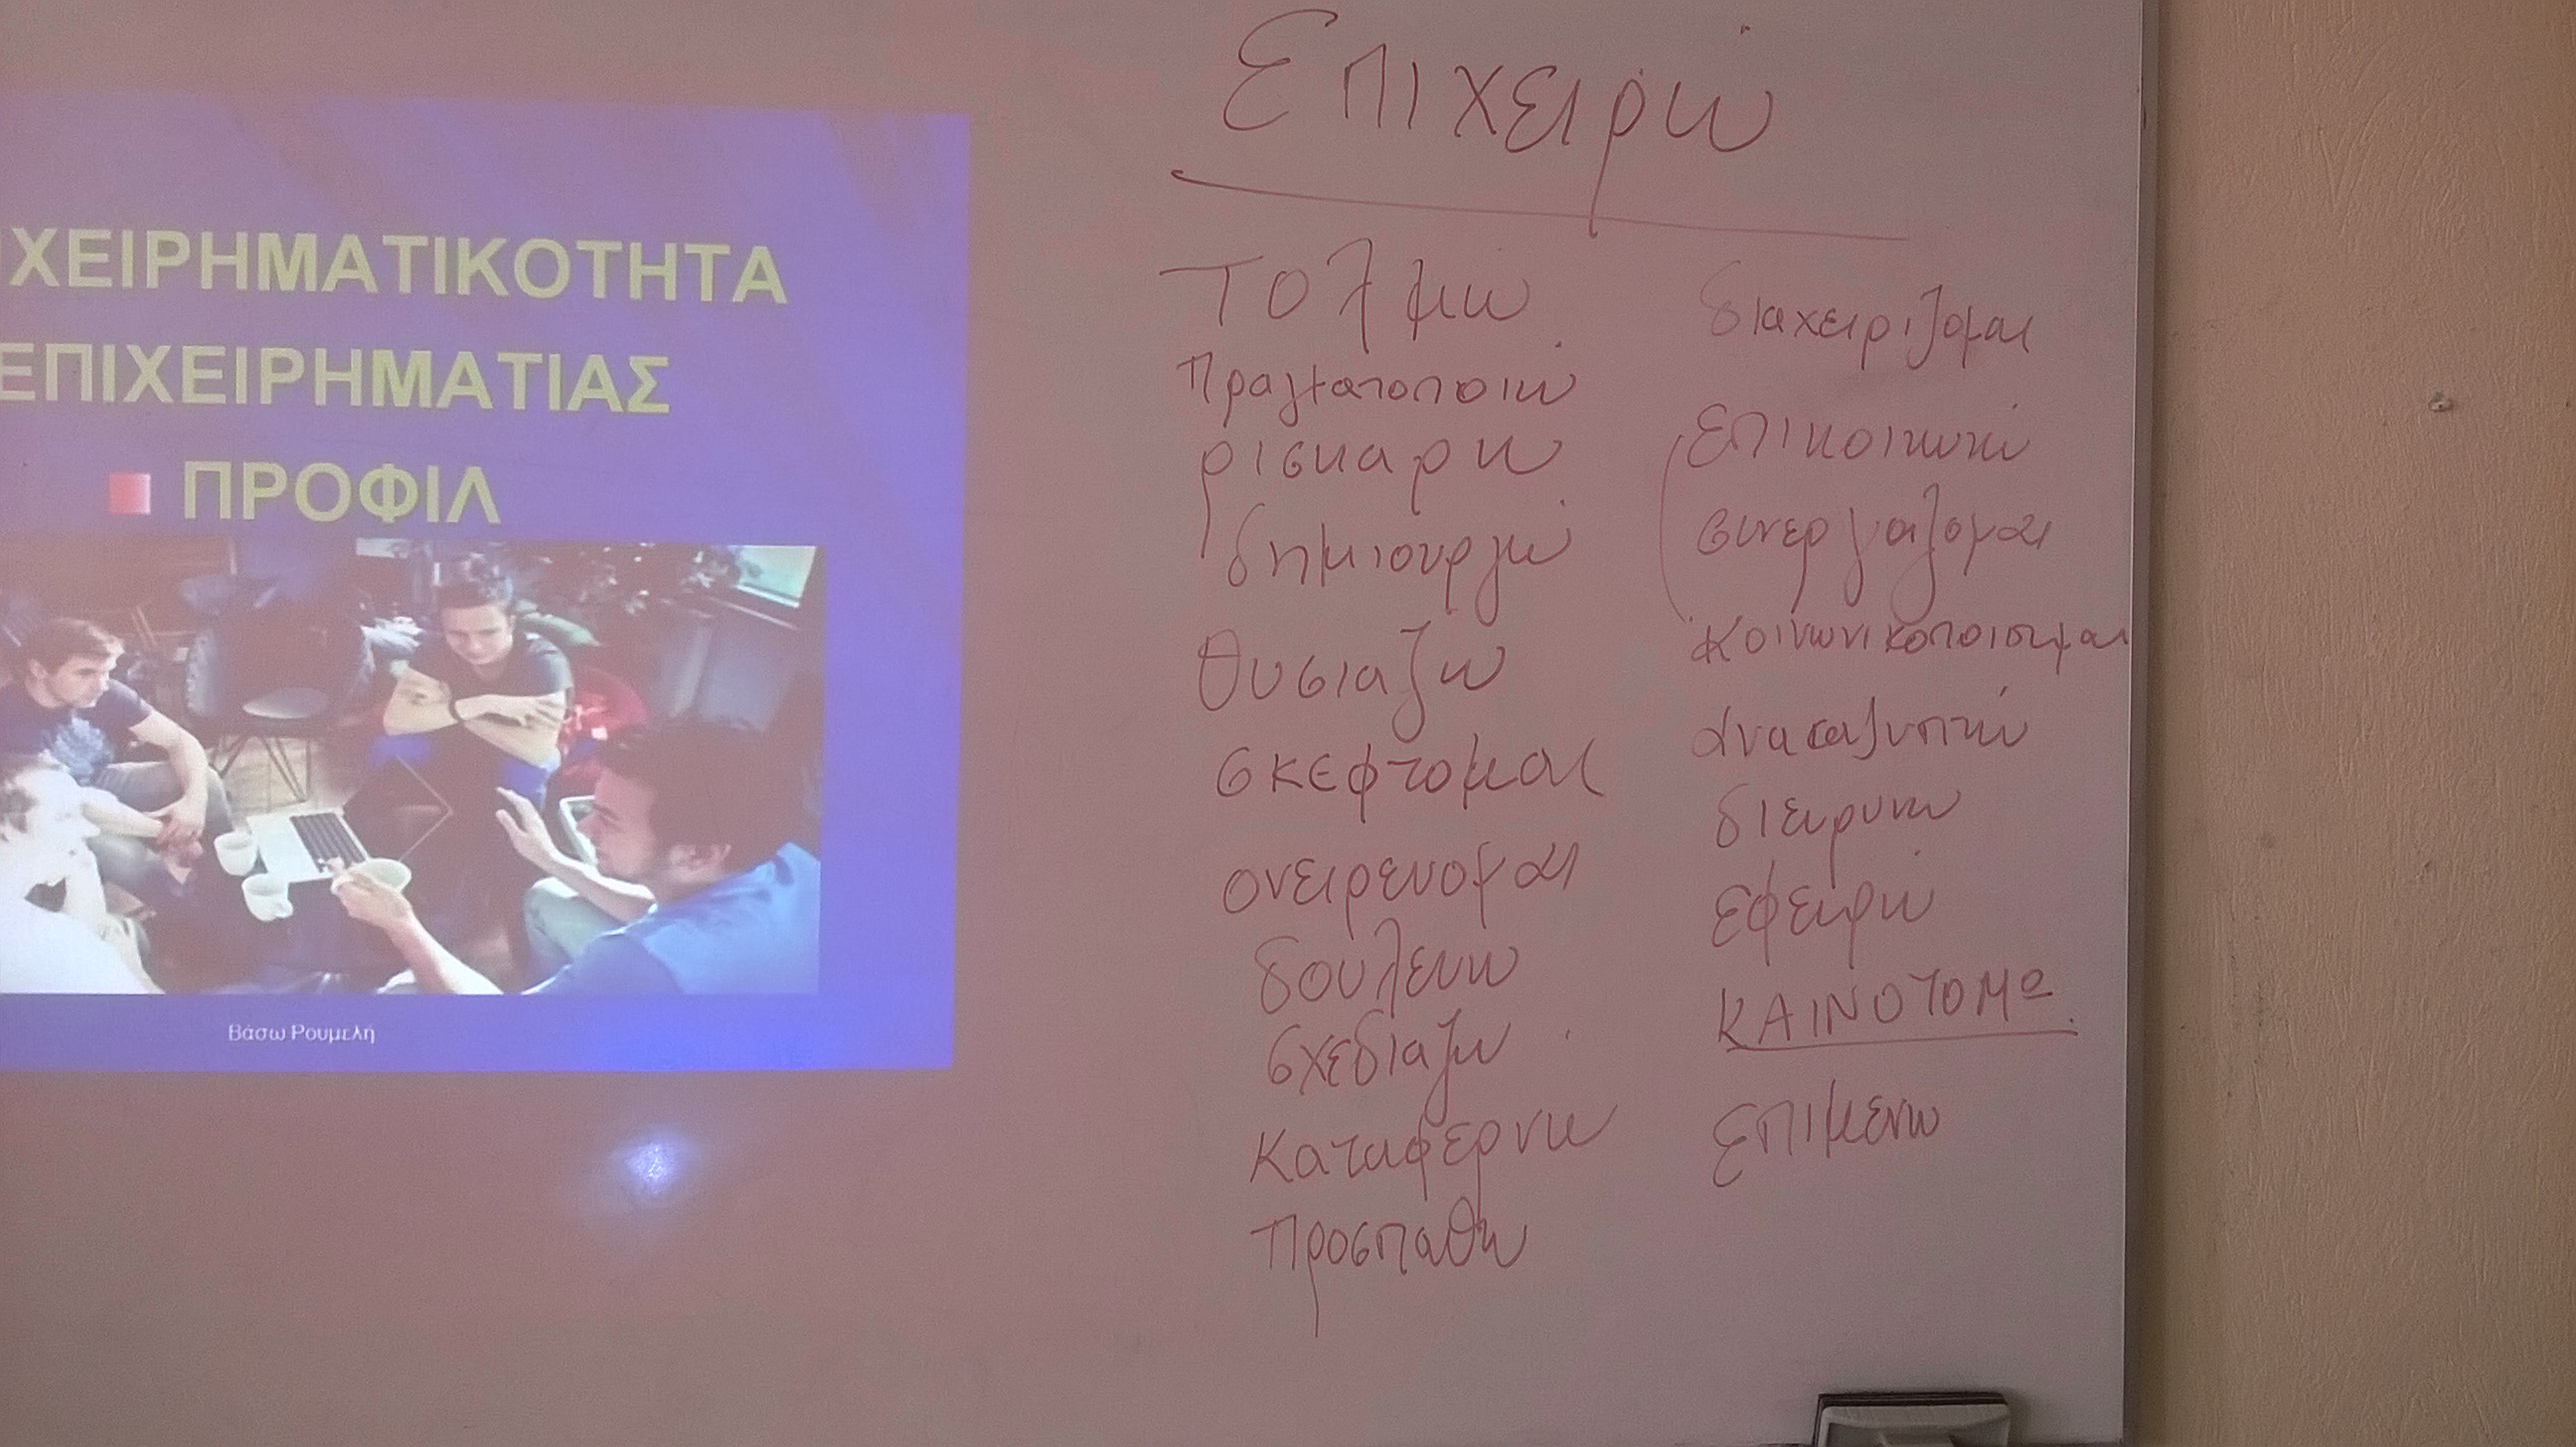 ΧΕΙΡΗΜΑΤΙΚΟΤΗΤΑ
ΕΠΙΧΕΙΡΗΜΑΤΙΑΣ
ΠΡΟΦΙΛ
Βάσω Ρουμελη
Επιχειρώ
Τολμω
Πραγματοποιώ
ρισκαρω
δημιουργώ
θυσιαζω
σκεφτομαι
ονειρευομαι
δουλευω
σχεδιαζω
Καταφερνω
Προσπαθω
διαχειριζομαι
Επικοινωνώ
συνεργαζομαι
Κοινωνικοποιουμαι
διευρυνω
εφευρώ
ΚΑΙΝΟΤΟΜΩ
Επιμενω